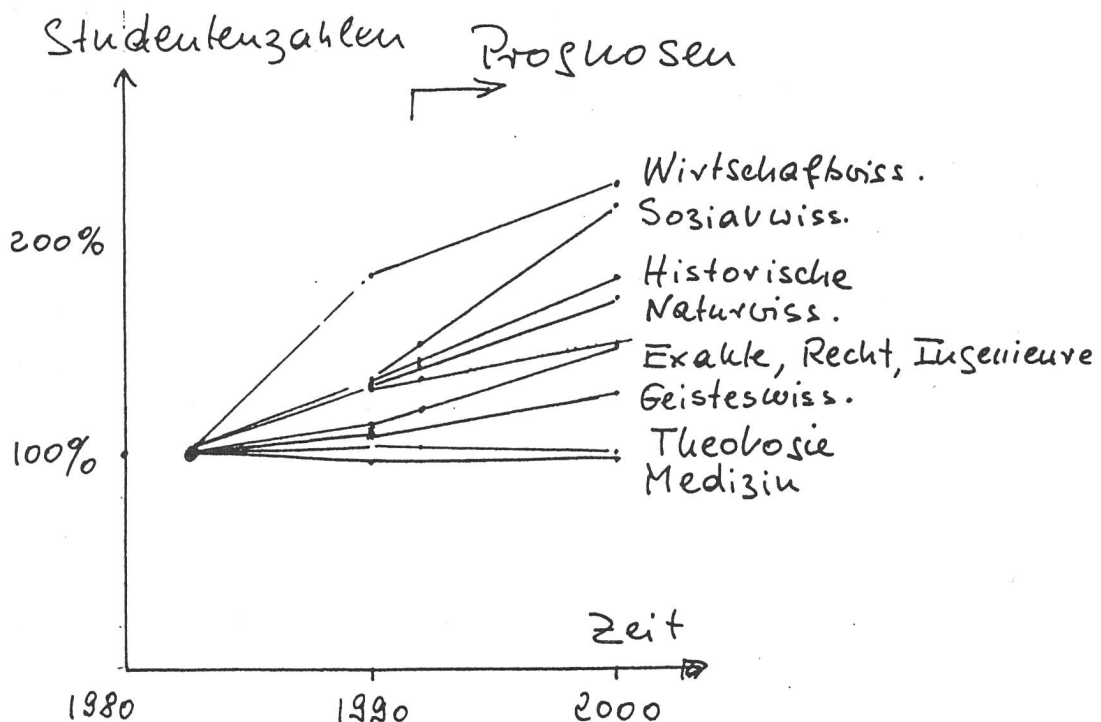 Studentenzahlen
Prognosen
Wirtschaftswiss.
Sozialwiss.
200%
Historische
Naturwiss.
Exakte, Recht, Ingenieure
Geisteswiss.
100%
Theologie
Medizin
Zeit
1980
1990
2000